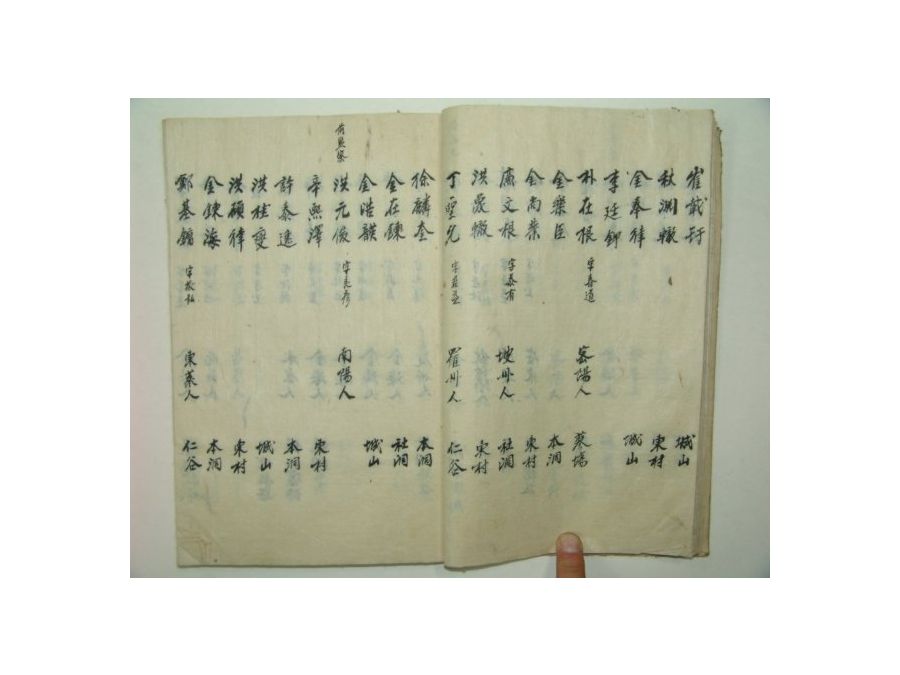 崔載玗 城山
秋淵轍 東村
金奉律
李廷鉀 城山
朴在根 字春道 密陽人 萊場
金樂臣 本洞
金尚業 東村
廉文根 字泰有 坡州人 社洞
洪震轍 東村
丁聖允 羅州人 仁谷
徐麟奎 本洞
金在鍊 社洞
金浩鎂 城山
前監察 洪元俊 字長彥 南陽人
辛熙澤 東村
許泰逸 本洞
洪桂燮 城山
洪碩律 東村
金鍊海 本洞
鄭基鏞 東萊人 仁谷